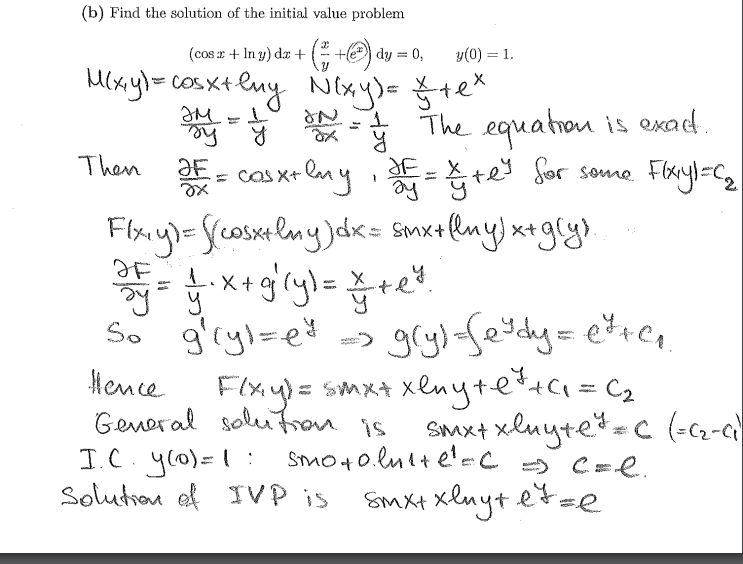 (b) Find the solution of the initial value problem
(cos x + ln y) dx + (x/y + e^x) dy = 0, y(0) = 1.
M(x,y) = cosx + lny N(x,y) = x/y + e^x
∂M/∂y = 1/y ∂N/∂x = 1/y The equation is exact.
Then ∂F/∂x = cosx + lny , ∂F/∂y = x/y + e^y for some F(x,y) = C₂
F(x,y) = ∫(cosx + lny)dx = sinx + (lny)x + g(y).
∂F/∂y = 1/y · x + g'(y) = x/y + e^y.
So g'(y) = e^y => g(y) = ∫e^y dy = e^y + C₁.
Hence F(x,y) = sinx + xlny + e^y + C₁ = C₂
General solution is sinx + xlny + e^y = C (= C₂ - C₁)
I.C. y(0) = 1 : sin0 + 0.ln1 + e¹ = C => C = e.
Solution of IVP is sinx + xlny + e^y = e